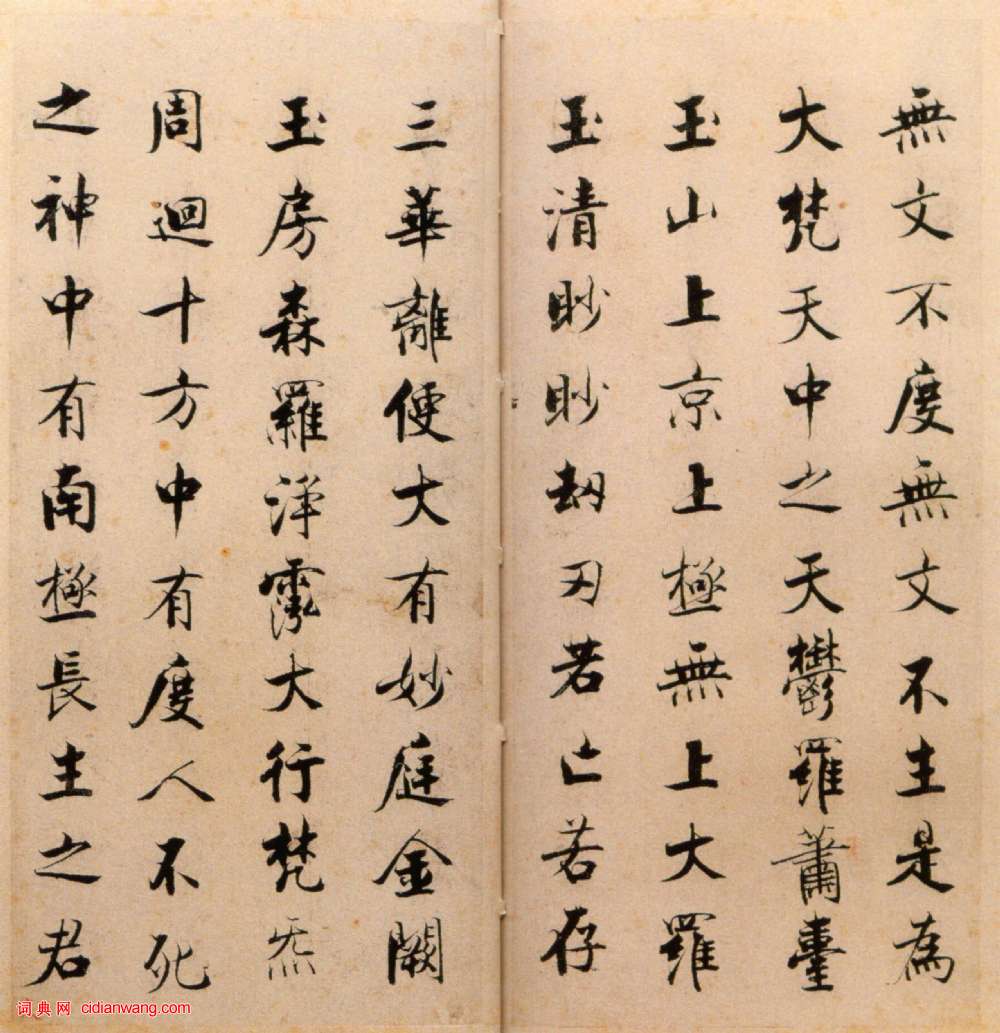 無文不度無文不主是為
大梵天中之天鬱羅蕭臺
玉山上京上極無上大羅
玉清眇眇刼刃若亡若存
三華離便大有妙庭金闕
玉房森羅淨霐大行梵炁
周迴十方中有度人不死
之神中有南極長主之君
词典网 cidianwang.com